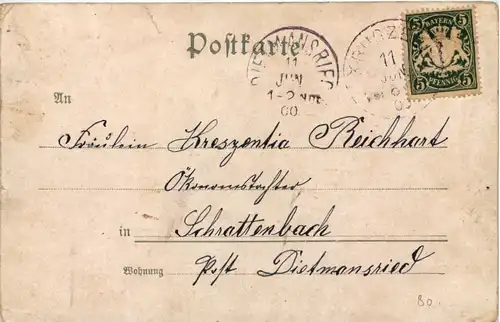 Postkarte
DIETMANSRIED
11
JUN
1-2 NM
00.
11
JUN
BAYERN
5 5
PFENNIG
An
Fräulein Kreszentia Reichhart
Ökonomstochter
in Schrattenbach
Wohnung Post Dietmansried
80.